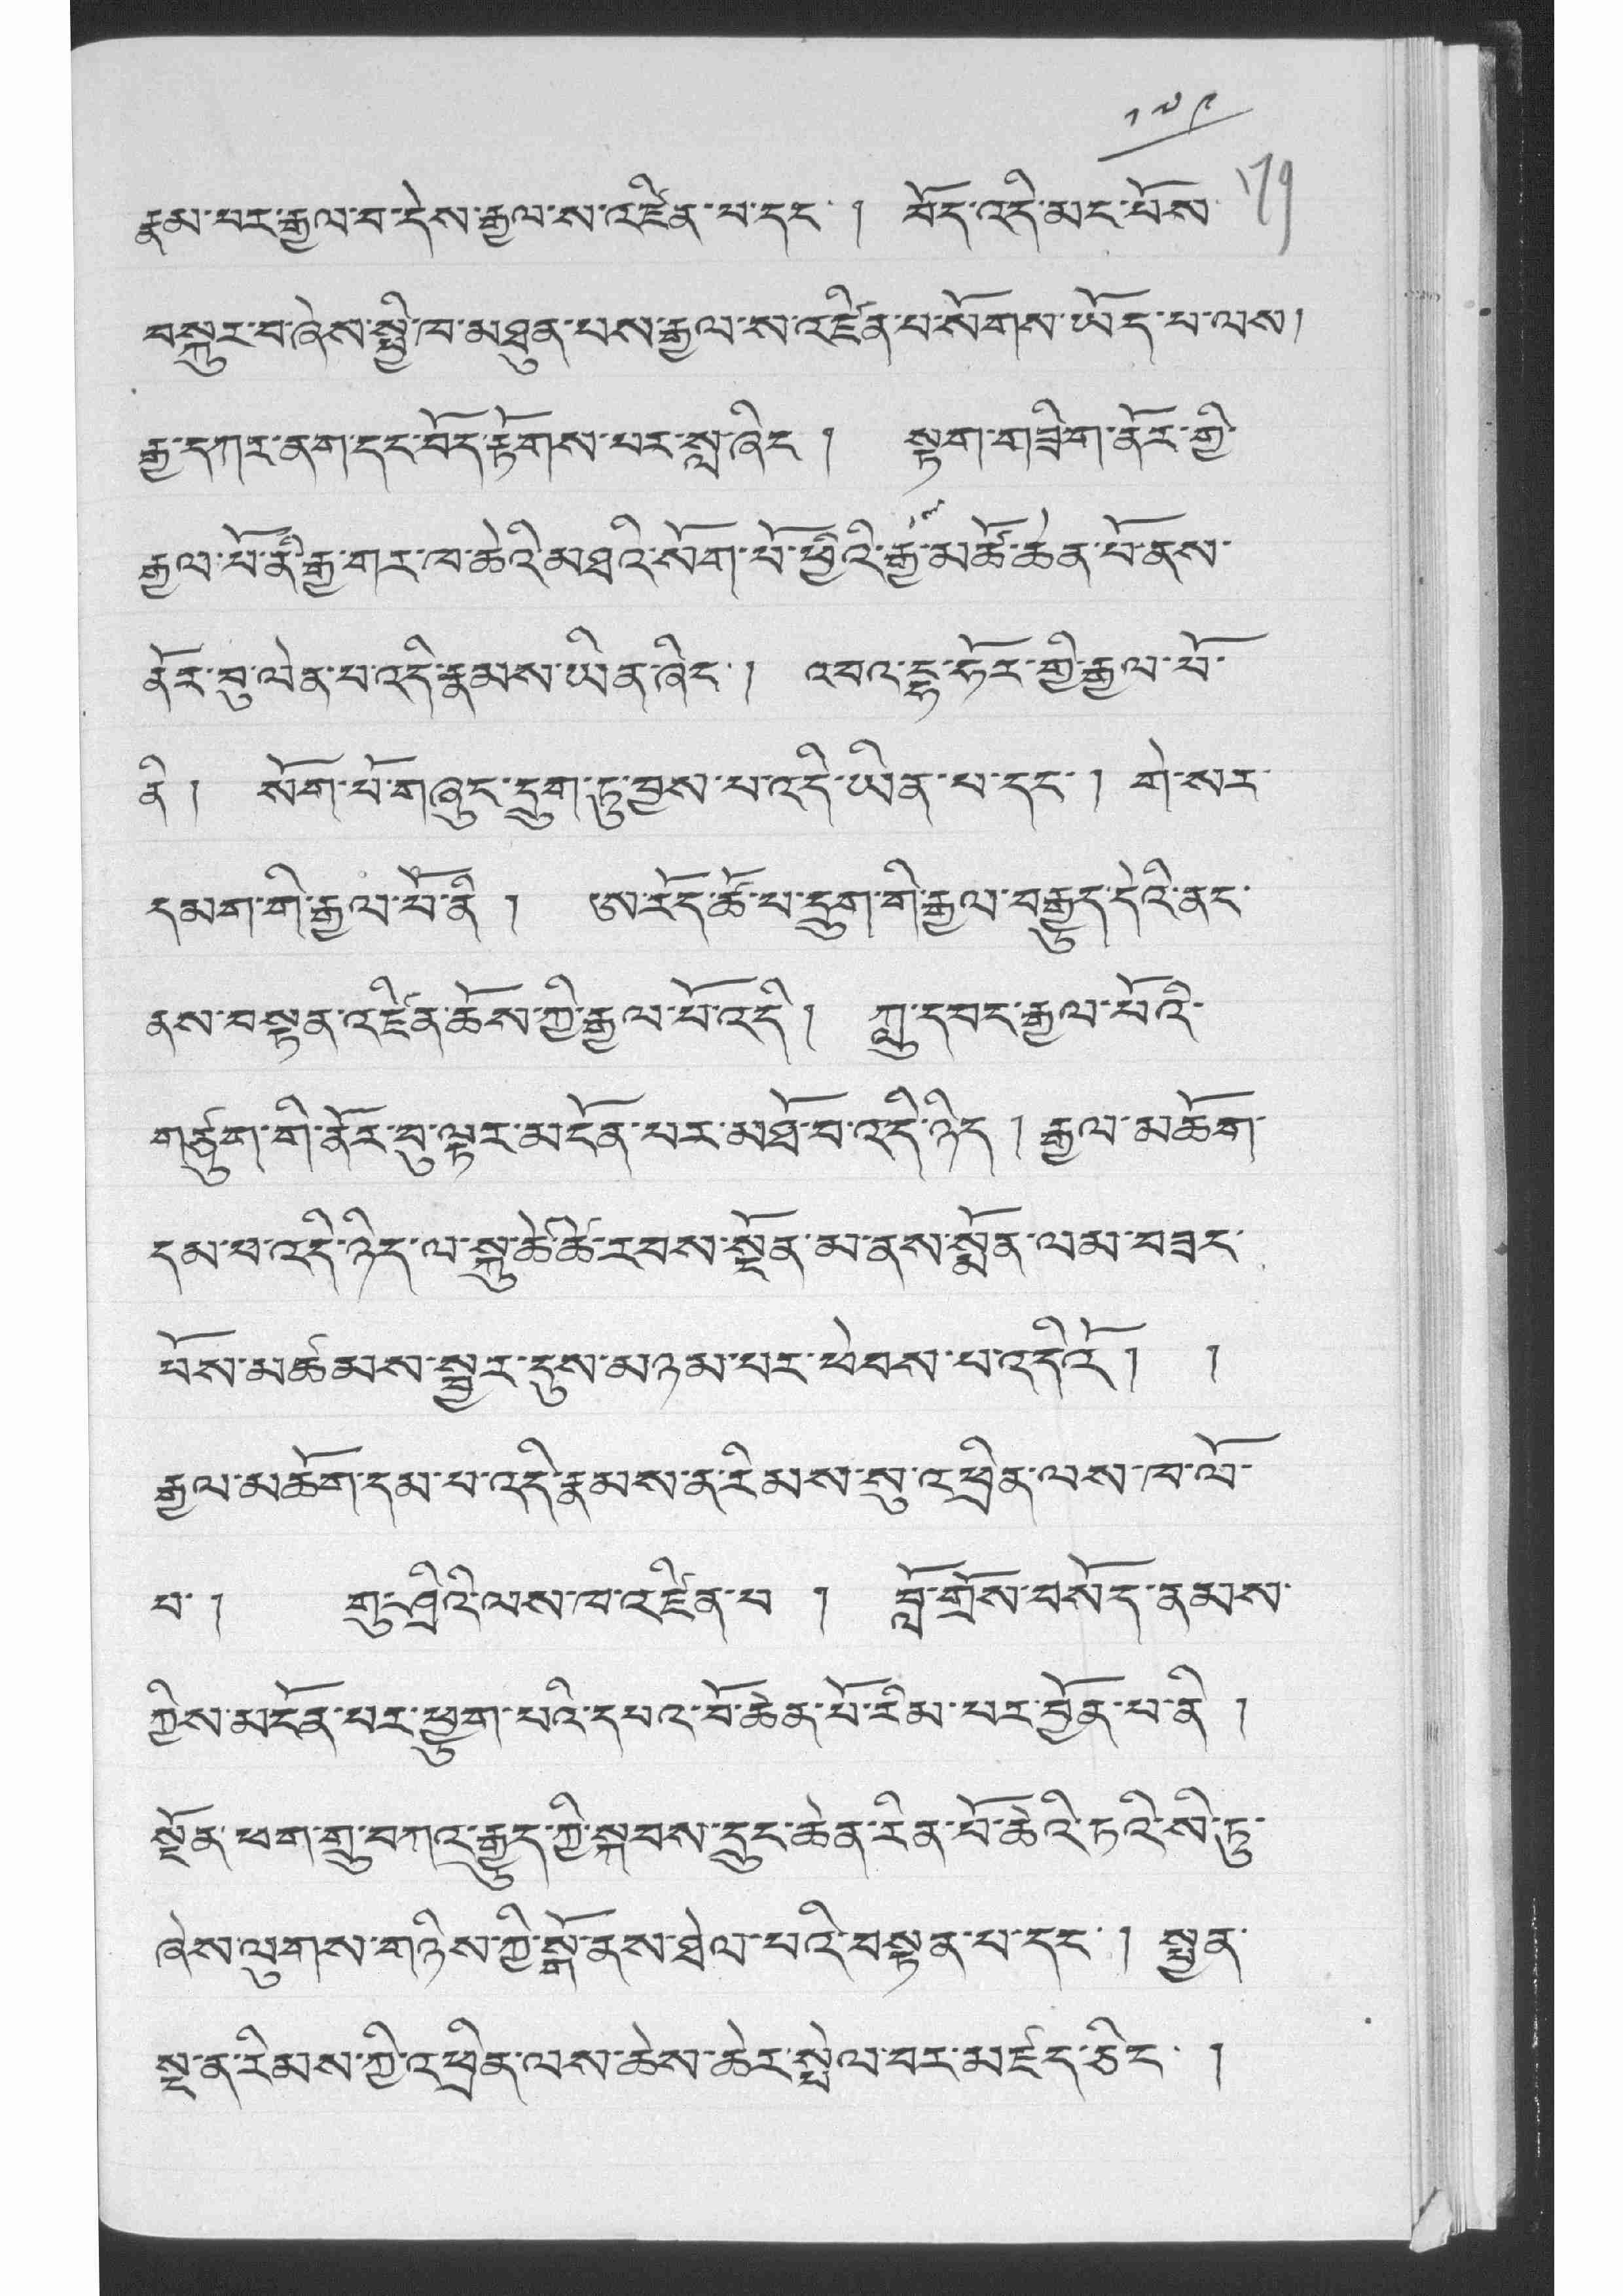 ༡༧༩
79
རྣམ་པར་རྒྱལ་བ་དེས་རྒྱལ་ས་འཛིན་པ་དང་། བོད་འདི་མང་པོས་
བསྐུར་བ་ཞེས་སྤྱི་ཁ་མཐུན་པས་རྒྱལ་ས་འཛིན་པ་སོགས་ཡོད་པ་ལས།
རྒྱ་དཀར་ནག་དང་བོད་རྟོགས་པར་སླ་ཞིང་། སྟག་གཟིག་ནོར་གྱི་
རྒྱལ་པོ་ནི་རྒྱ་གར་ཁ་ཆེའི་མཐའི་སོག་པོ་ཕྱིའི་རྒྱ་མཚོ་ཆེན་པོ་ནས་
ནོར་བུ་ལེན་པ་འདི་རྣམས་ཡིན་ཞིང་། འབའ་ཧོར་གྱི་རྒྱལ་པོ་
ནི། སོག་པོ་གཞུང་དྲུག་ཏུ་བྱས་པ་འདི་ཡིན་པ་དང་། གེ་སར་
དམག་གི་རྒྱལ་པོ་ནི། ཨ་རོད་ཚོ་པ་དྲུག་གི་རྒྱལ་བརྒྱུད་དེའི་ནང་
ནས་བསྟན་འཛིན་ཆོས་ཀྱི་རྒྱལ་པོ་འདི། ཀླུ་དབང་རྒྱལ་པོའི་
གཙུག་གི་ནོར་བུ་ལྟར་མངོན་པར་མཐོ་བ་འདི་ཉིད། རྒྱལ་མཆོག་
དམ་པ་འདི་ཉིད་ལ་སྐུ་ཚེ་ཚེ་རབས་སྔོན་མ་ནས་སྨོན་ལམ་བཟང་
པོས་མཚམས་སྦྱར་དུས་མཉམ་པར་ཕེབས་པ་འདིའོ། །
རྒྱལ་མཆོག་དམ་པ་འདི་རྣམས་ན་རིམས་སུ་འཕྲིན་ལས་ཁ་ལོ་
བ་། གུ་ཤྲིའི་ལས་ཁ་འཛིན་པ། བློ་གྲོས་བསོད་ནམས་
ཀྱིས་མངོན་པར་ཕྱུག་པའི་དཔའ་བོ་ཆེན་པོ་རིམ་པར་བྱོན་པ་ནི།
སྔོན་ཕག་གྲུ་བཀའ་རྒྱུད་ཀྱི་སྐབས་དྲུང་ཆེན་རིན་པོ་ཆེའི་ཏའི་སི་ཏུ་
ཞེས་ལུགས་གཉིས་ཀྱི་སྒོ་ནས་ཐེལ་པའི་བསྟན་པ་དང་། སྤྱན་
སྔ་ན་རིམས་ཀྱི་འཕྲིན་ལས་ཆེས་ཆེར་སྤེལ་བར་མཛད་ཅིང་།